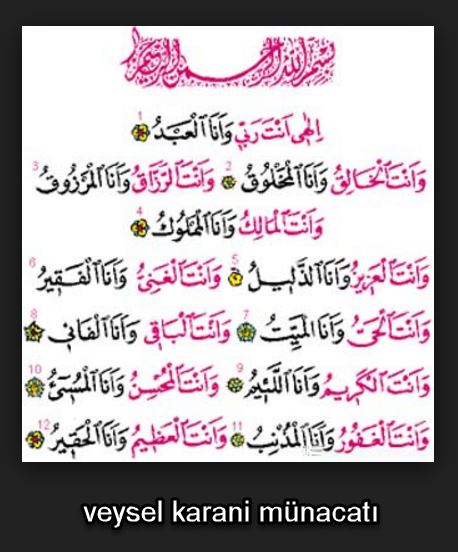 بِسْمِ اللهِ الرَّحْمٰنِ الرَّحِيمِ
اِلٰهِى اَنْتَ رَبِّى وَاَنَا الْعَبْدُ 1
وَاَنْتَ الْخَالِقُ وَاَنَا الْمَخْلُوقُ 2 وَاَنْتَ الرَّزَّاقُ وَاَنَا الْمَرْزُوقُ 3
وَاَنْتَ الْمَالِكُ وَاَنَا الْمَمْلُوكُ 4
وَاَنْتَ الْعَزِيزُ وَاَنَا الذَّلِيلُ 5 وَاَنْتَ الْغَنِىُّ وَاَنَا الْفَقِيرُ 6
وَاَنْتَ الْحَىُّ وَاَنَا الْمَيِّتُ 7 وَاَنْتَ الْبَاقِى وَاَنَا الْفَانِى 8
وَاَنْتَ الْكَرِيمُ وَاَنَا اللَّئِيمُ 9 وَاَنْتَ الْمُحْسِنُ وَاَنَا الْمُسِىءُ 10
وَاَنْتَ الْغَفُورُ وَاَنَا الْمُذْنِبُ 11 وَاَنْتَ الْعَظِيمُ وَاَنَا الْحَقِيرُ 12
veysel karani münacatı